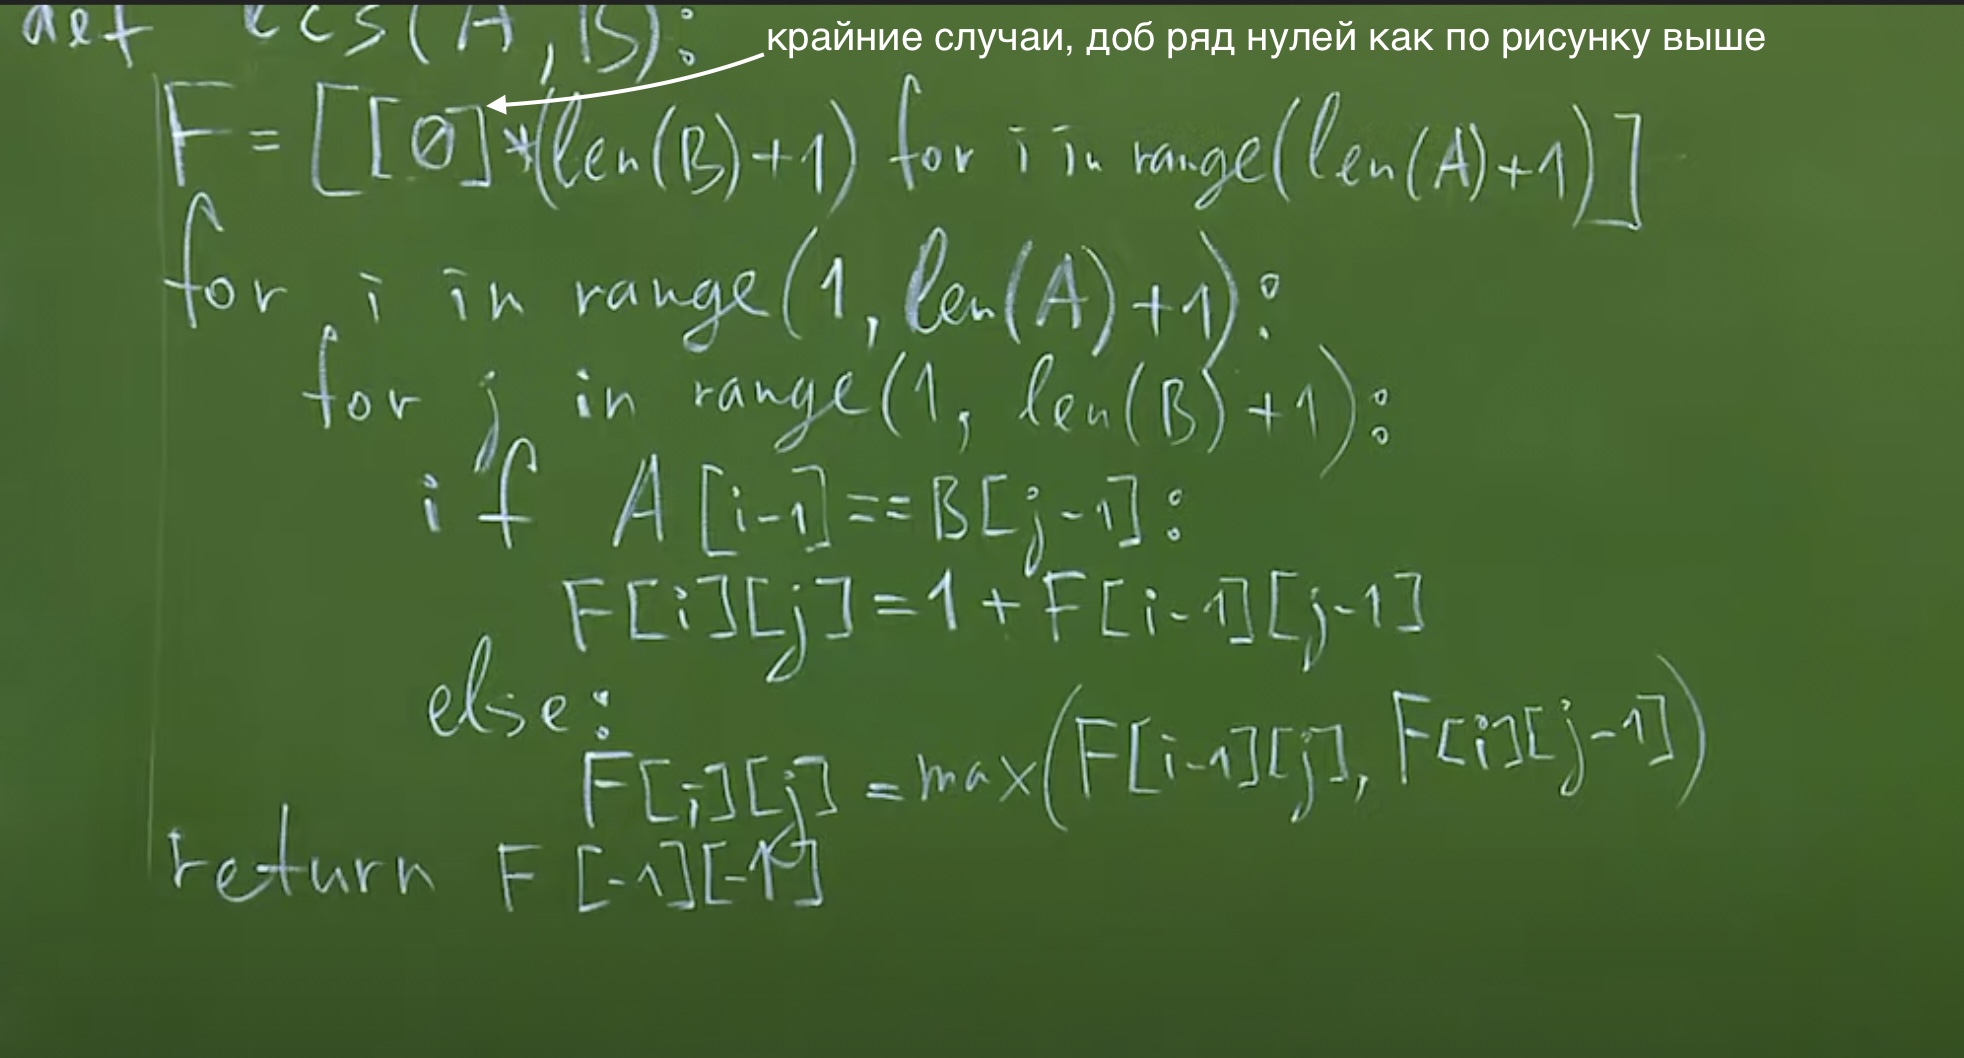 def lcs(A, B):
крайние случаи, доб ряд нулей как по рисунку выше
F = [[0]*(len(B)+1) for i in range(len(A)+1)]
for i in range(1, len(A)+1):
for j in range(1, len(B)+1):
if A[i-1]==B[j-1]:
F[i][j]=1+F[i-1][j-1]
else:
F[i][j]=max(F[i-1][j], F[i][j-1])
return F[-1][-1]